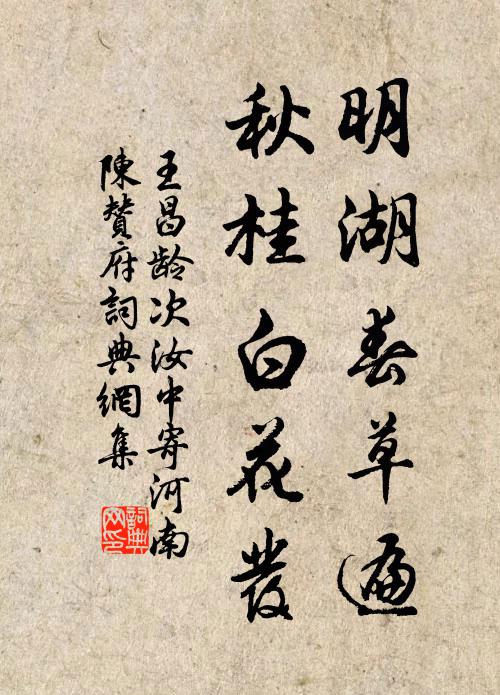 明湖春草遍
秋桂白花發
王昌龄次汝中寄河南
陳贊府詞典網集
詞典网印